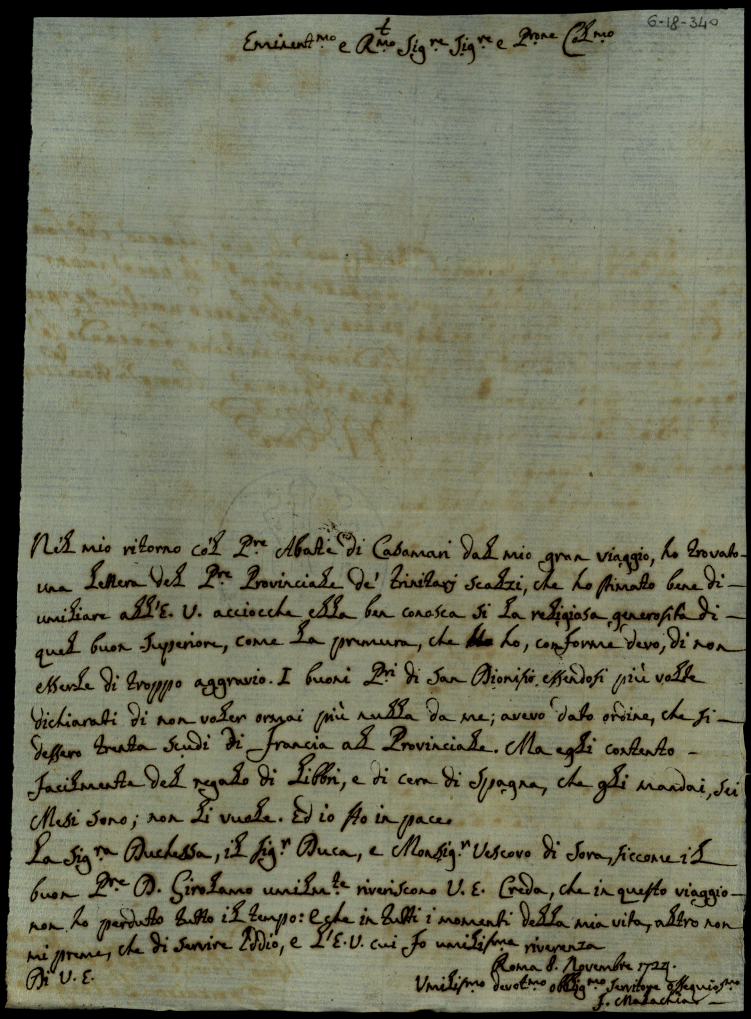 6-18-340
Eminentmo e Rmo Sigre Sigre e Prone Colmo
Nel mio ritorno col Pre Abate di Casamari dal mio gran viaggio, ho trovato
una lettera del Pre Provinciale de' trinitarj scalzi, che ho stimato bene di
umiliare all'E. V. acciocche ella ben conosca si la religiosa generosità di
quel buon Superiore, come la premura, che ho, conforme devo, di non
esserle di troppo aggravio. I buoni Pri di San Dionisio essendosi più volte
dichiarati di non voler ormai più nulla da me; avevo dato ordine, che si
dessero trenta scudi di Francia al Provinciale. Ma egli contento
facilmente del regalo di libbri, e di cera di Spagna, che gli mandai, sei
Mesi sono; non li vuole. Ed io sto in pace.
La Sigra Duchessa, il Sigr Duca, e Monsigr Vescovo di Sora, siccome il
buon Pre D. Girolamo umilmte riveriscono V. E. Creda, che in questo viaggio
non ho perduto tutto il tempo: e che in tutti i momenti della mia vita, altro non
mi preme, che di servire Iddio, e l'E. V. cui fo umilisma riverenza
Roma 8. Novembre 1724.
Di V. E.
Umilismo devotmo obbligmo Servitore ossequiosmo
F. Malachia